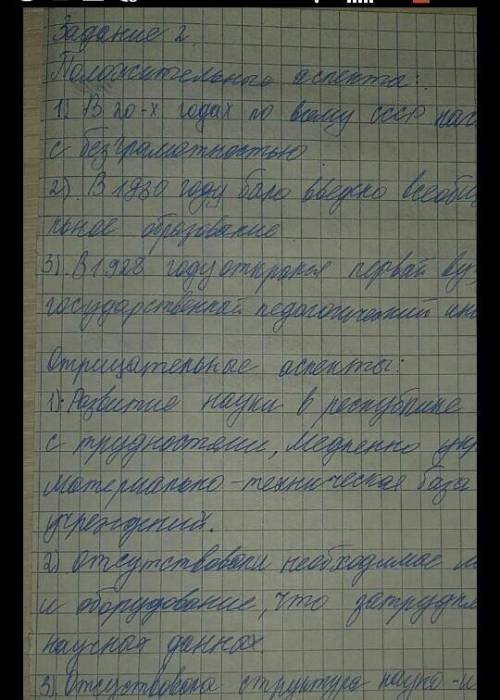 Задание 2.
Положительные аспекты:
1). В 20-х годах по всему СССР
с безграмотностью
2). В 1930 году было введно
ное образование
3). В 1928 году открылся первый вуз,
государственный педагогический
Отрицательные аспекты:
1). Развитие науки в республике
с трудностями, медленно укр
материально-техническая база
учреждений.
2) Отсутствовали необходимые
и оборудование, что затрудня
научных данных
3) Отсуствовала структура научно-и